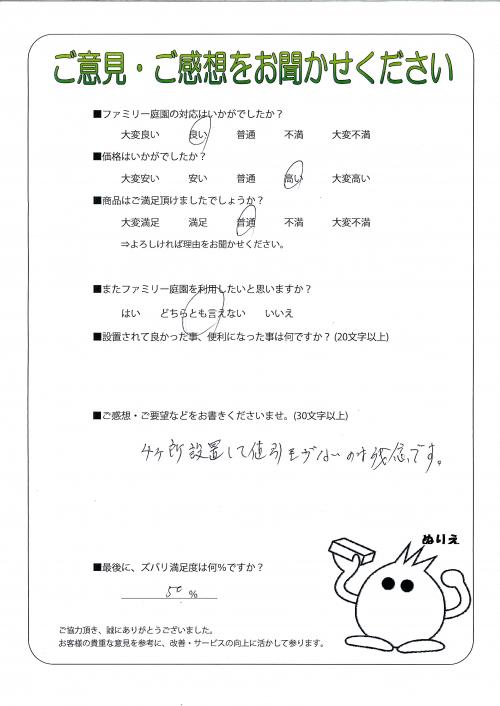 ご意見・ご感想をお聞かせください
■ファミリー庭園の対応はいかがでしたか？
大変良い　良い　普通　不満　大変不満
■価格はいかがでしたか？
大変安い　安い　普通　高い　大変高い
■商品はご満足頂けましたでしょうか？
大変満足　満足　普通　不満　大変不満
⇒よろしければ理由をお聞かせください。
■またファミリー庭園を利用したいと思いますか？
はい　どちらとも言えない　いいえ
■設置されて良かった事、便利になった事は何ですか？(20文字以上)
■ご感想・ご要望などをお書きくださいませ。(30文字以上)
4ヶ所設置して値引もがないのは残念です。
ぬりえ
■最後に、ズバリ満足度は何％ですか？
50 %
ご協力頂き、誠にありがとうございました。
お客様の貴重な意見を参考に、改善・サービスの向上に活かして参ります。